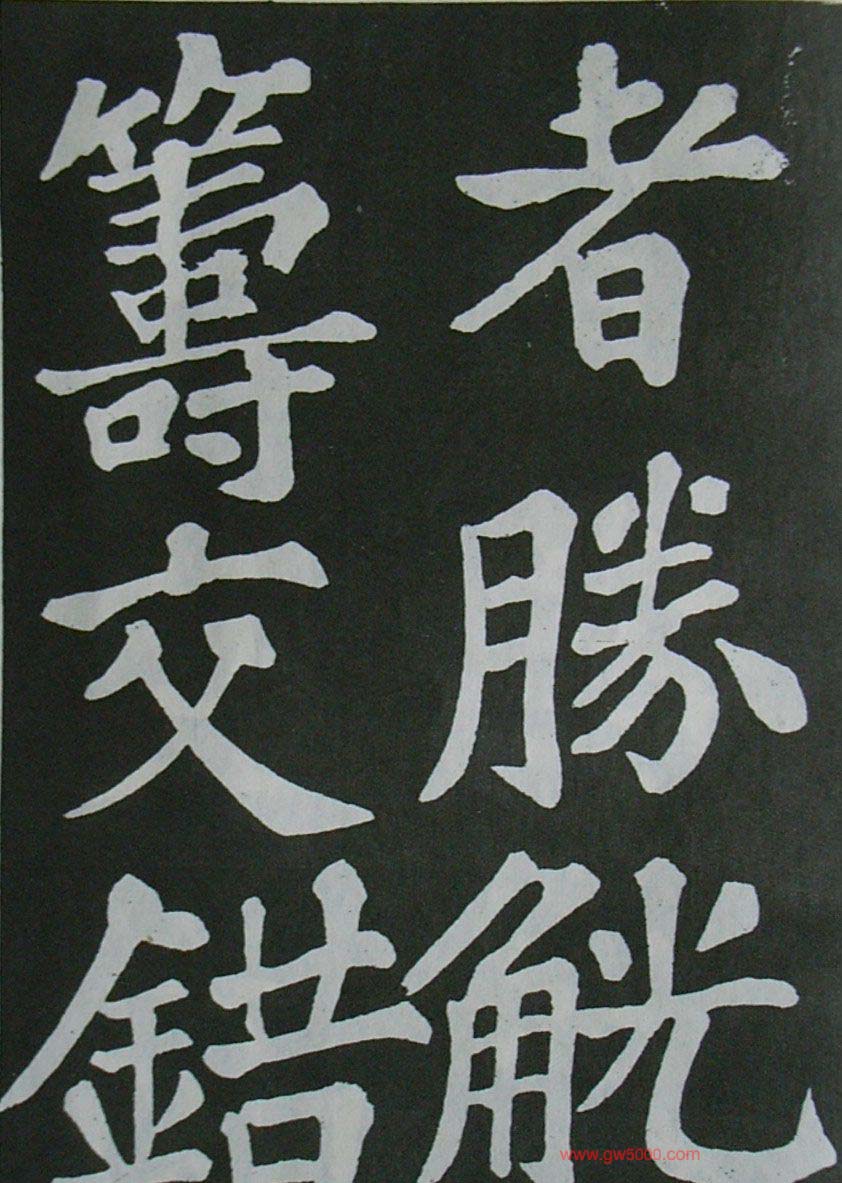 者勝觥
籌交錯
www.gw5000.com